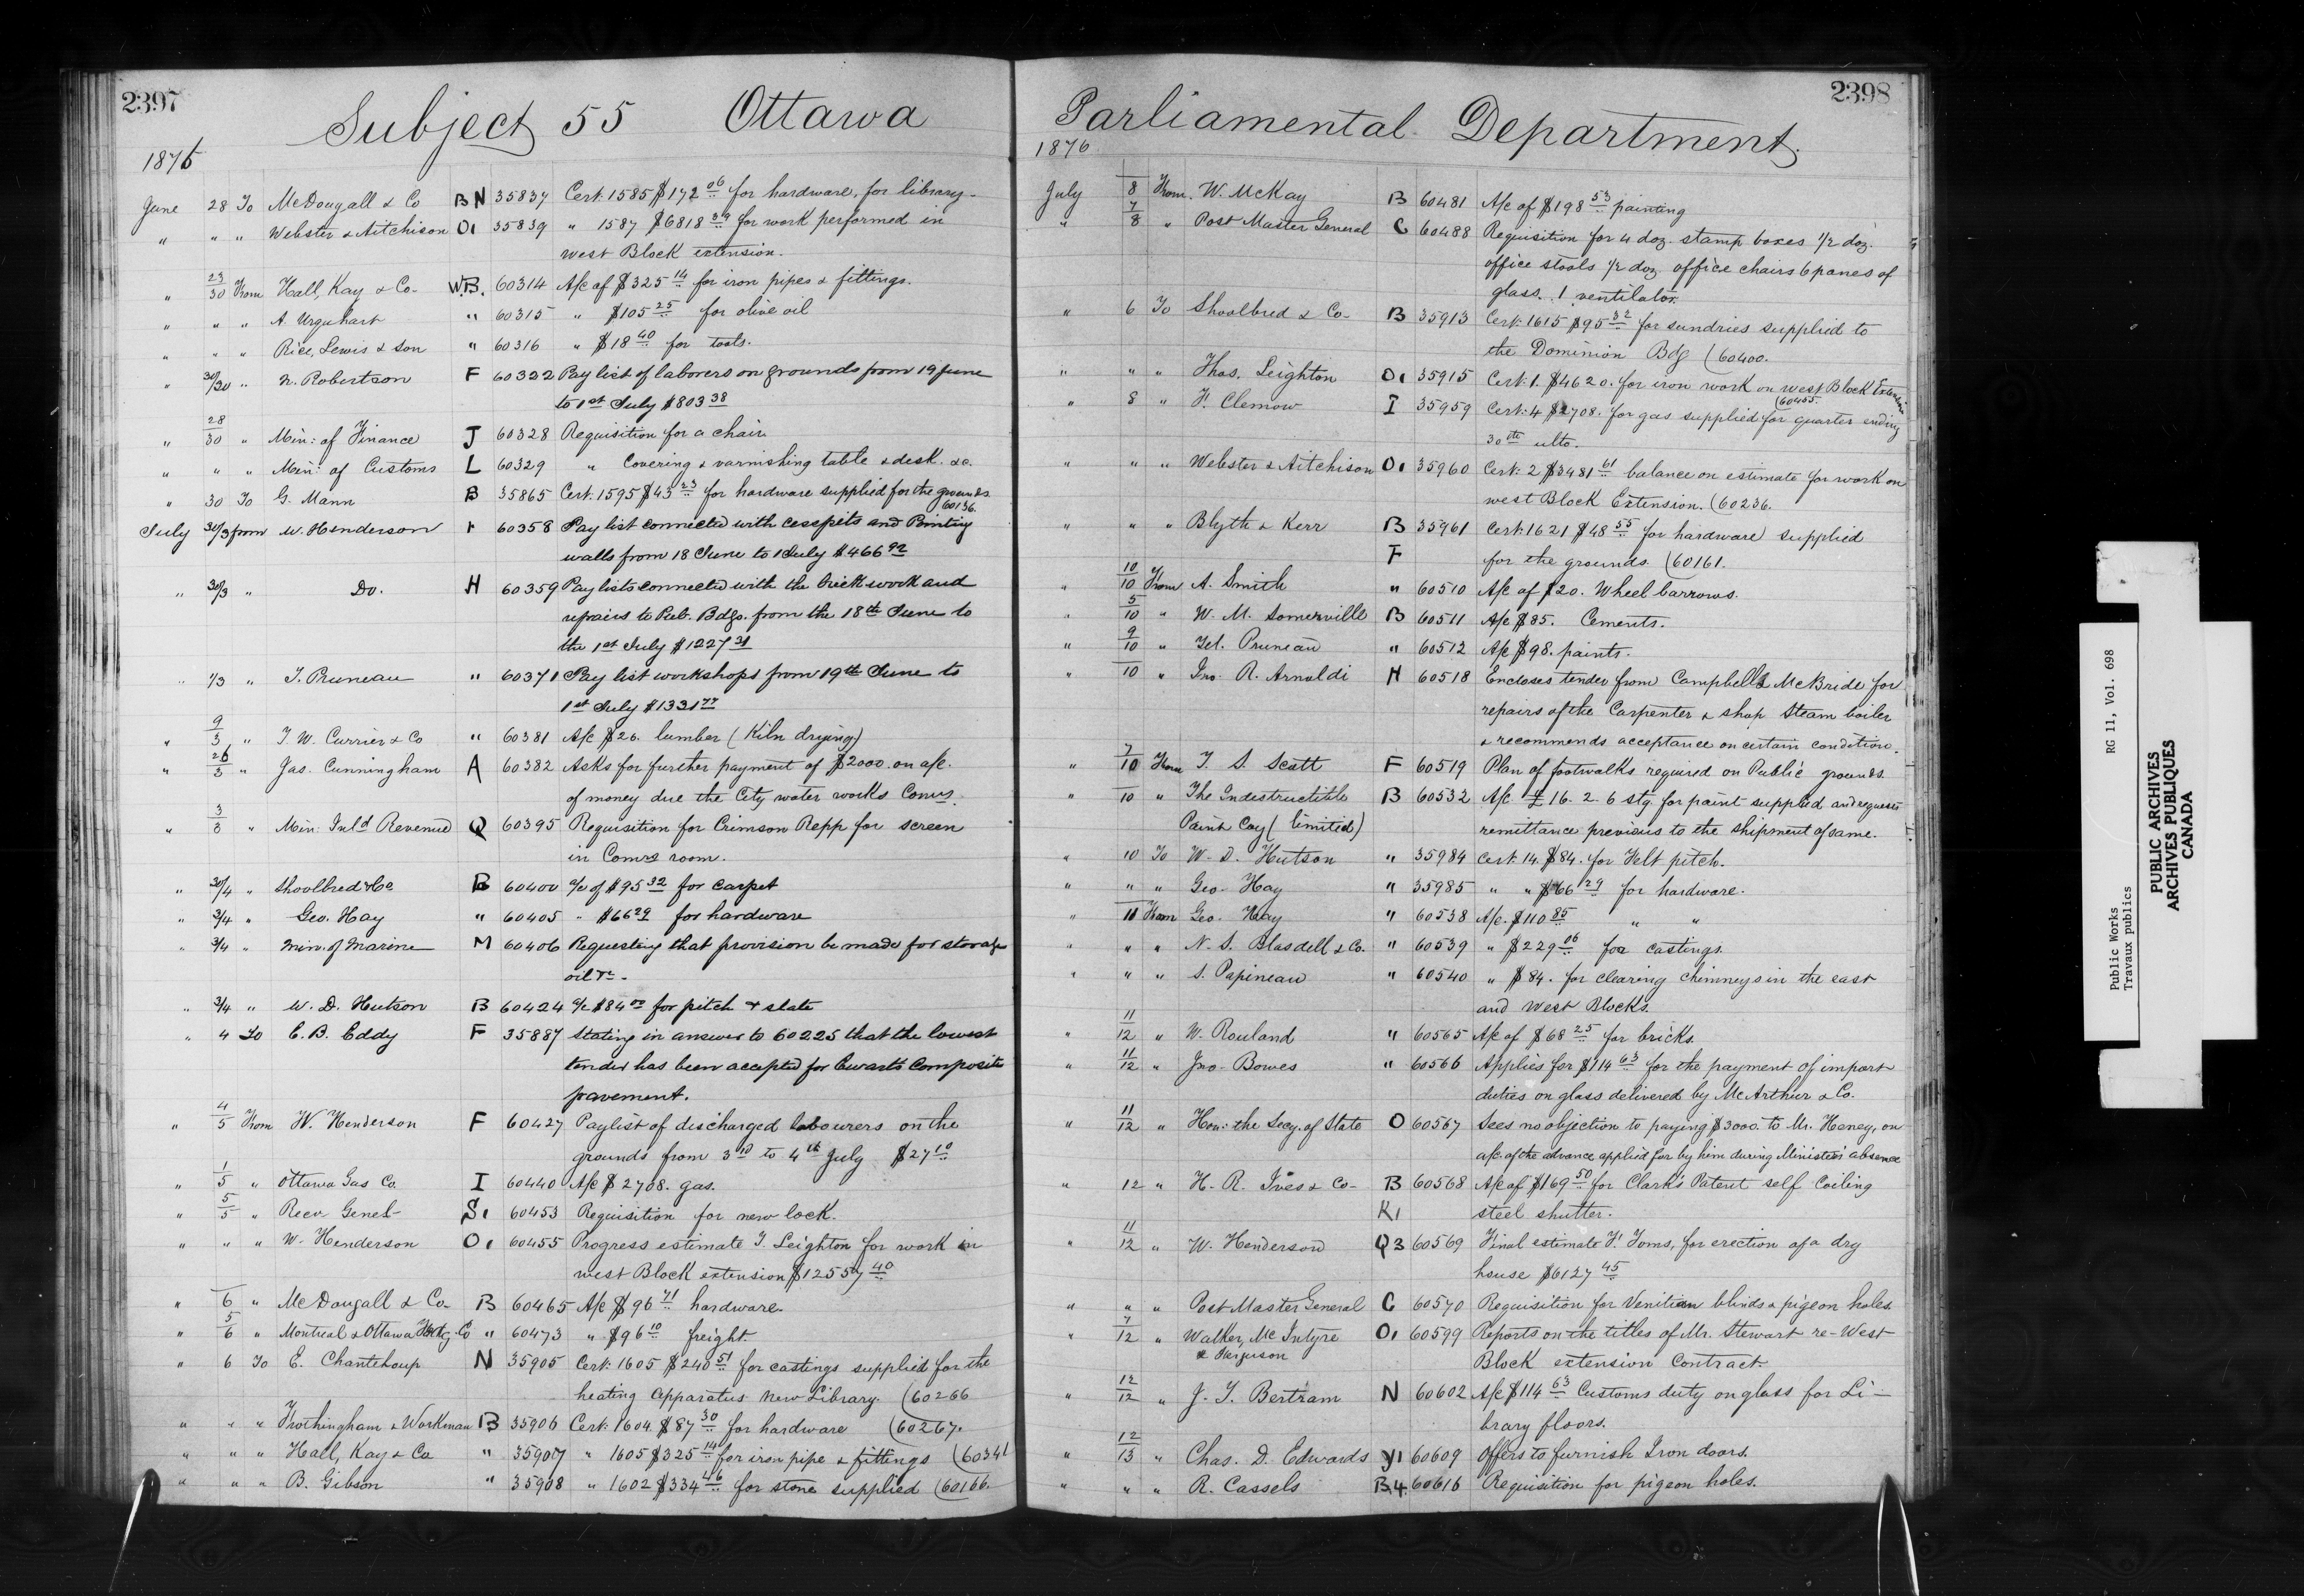 2397
Subject 55 Ottawa
1876
June 28 To McDougall & Co B N 35837 Cert. 1585 $172 06 for hardware, for library
" " " Webster & Aitchison O1 35839 " 1587 $6818 39 for work performed in
west Block extension.
" 23/30 From Hall, Kay & Co W.B. 60314 A/c of $325 14 for iron pipes & fittings.
" " " A. Urquhart " 60315 " $105 25 for olive oil
" " " Rice, Lewis & Son " 60316 " $18 40 for tools.
" 30/30 " N. Robertson F 60322 Pay list of laborers on grounds from 19 June
to 1st July $803 38
" 28/30 " Min: of Finance J 60328 Requisition for a chair
" " " Min: of Customs L 60329 " Covering & varnishing table & desk. &c.
" 30 To G. Mann B 35865 Cert. 1595 $43 23 for hardware supplied for the grounds
60136.
July 30/3 from W. Henderson F 60358 Pay list connected with cesspits and Pointing
walls from 18 June to 1 July $466 92
" 30/3 " Do. H 60359 Pay lists connected with the brick work and
repairs to Pub. Bdgs. from the 18th June to
the 1st July $1227 31
" 1/3 " T. Pruneau " 60371 Pay list workshops from 19th June to
1st July $1331 77
" 9/3 " T. W. Currier & Co " 60381 A/c $26. lumber (Kiln drying)
" 26/3 " Jas. Cunningham A 60382 Asks for further payment of $2000. on a/c.
of money due the City water works Comrs.
" 3/3 " Min: Inld Revenue Q 60395 Requisition for Crimson Repp for screen
in Comrs room.
" 30/4 " Shoolbred & Co B 60400 a/c of $95 32 for carpet
" 3/4 " Geo. Hay " 60405 " $66 29 for hardware
" 3/4 " Min. of Marine M 60406 Requesting that provision be made for storage
oil &c.
" 3/4 " W. D. Hutson B 60424 a/c $84 00 for pitch & slate
" 4 To E. B. Eddy F 35887 Stating in answer to 60225 that the lowest
tender has been accepted for Ewarts Composite
pavement.
" 4/5 From W. Henderson F 60427 Paylist of discharged labourers on the
grounds from 3rd to 4th July $27 10
" 1/5 " Ottawa Gas Co. I 60440 A/c $2708. gas.
" 5/5 " Recr Genel S1 60453 Requisition for new lock.
" " " W. Henderson O1 60455 Progress estimate T. Leighton for work in
west Block extension $12557 40
" 6 " McDougall & Co B 60465 A/c $96 71 hardware
" 5/6 " Montreal & Ottawa Co " 60473 " $96 10 freight
" 6 To E. Chanteloup N 35905 Cert. 1605 $240 51 for castings supplied for the
heating apparatus new Library. (60266
" " " Frothingham & Workman B 35906 Cert. 1604 $87 30 for hardware (60267.
" " " Hall, Kay & Co " 35907 " 1605 $325 14 for iron pipe & fittings (60341
" " " B. Gibson " 35908 " 1602 $334 46 for stone supplied (60166.
2398
Parliamental Department.
1876
July 8 From W. McKay B 60481 A/c of $198 53 painting
" 7/8 " Post Master General C 60488 Requisition for 4 doz. stamp boxes 1/2 doz.
office stools 1/2 doz office chairs 6 panes of
glass. 1 ventilator.
" 6 To Shoolbred & Co B 35913 Cert. 1615 $95 32 for sundries supplied to
the Dominion Bdg (60400.
" " " Thos. Leighton O1 35915 Cert. 1. $4620. for iron work on west Block Extension
(60455.
" 8 " F. Clemow I 35959 Cert. 4 $2708. for gas supplied for quarter ending
30th ulto.
" " " Webster & Aitchison O1 35960 Cert. 2 $3481 61 balance on estimate for work on
west Block Extension. (60236.
" " " Blyth & Kerr B 35961 Cert. 1621 $48 55 for hardware supplied
F for the grounds. (60161.
" 10/10 From A. Smith " 60510 A/c of $20. Wheel barrows.
" 5/10 " W. M. Somerville B 60511 A/c $85. Cements.
" 9/10 " Tel. Pruneau " 60512 A/c $98. paints.
" 10 " Jno. R. Arnoldi H 60518 Encloses tender from Campbell & McBride for
repairs of the Carpenter's shop Steam boiler
& recommends acceptance on certain conditions.
" 7/10 From T. S. Scott F 60519 Plan of footwalks required on Public grounds.
" 10 " The Indestructible B 60532 A/c £16. 2. 6 stg. for paint supplied and requests
Paint Coy (limited) remittance previous to the shipment of same.
" 10 To W. D. Hutson " 35984 Cert. 14. $84. for Felt pitch.
" " " Geo. Hay " 35985 " " $66 29 for hardware.
" 11 From Geo. Hay " 60538 A/c. $110 85 " "
" " " N. S. Blasdell & Co. " 60539 " $229 06 for castings.
" " " S. Papineau " 60540 " $84. for clearing chimneys in the east
and West Blocks.
" 11/12 " W. Rouland " 60565 A/c of $68 25 for bricks.
" 11/12 " Jno. Bowes " 60566 Applies for $114 63 for the payment of import
duties on glass delivered by McArthur & Co.
" 11/12 " Hon: the Secy. of State O 60567 Sees no objection to paying $3000. to Mr. Heney, on
a/c. of the advance applied for by him during Minister's absence
" 12 " H. R. Ives & Co B 60568 A/c of $169 50 for Clark's Patent self Coiling
K1 steel shutter.
" 11/12 " W. Henderson Q3 60569 Final estimate F. Toms, for erection of a dry
house $6127 45
" " " Post Master General C 60570 Requisition for Venitian blinds & pigeon holes
" 7/12 " Walker, McIntyre O1 60599 Reports on the titles of Mr. Stewart re-West
& Ferguson Block extension Contract
" 12/12 " J. T. Bertram N 60602 A/c $114 63 Customs duty on glass for Li-
brary floors.
" 12/13 " Chas. D. Edwards Y1 60609 Offers to furnish Iron doors.
" " " R. Cassels B.4. 60616 Requisition for pigeon holes.
Public Works RG 11, Vol. 698
Travaux publics
PUBLIC ARCHIVES
ARCHIVES PUBLIQUES
CANADA